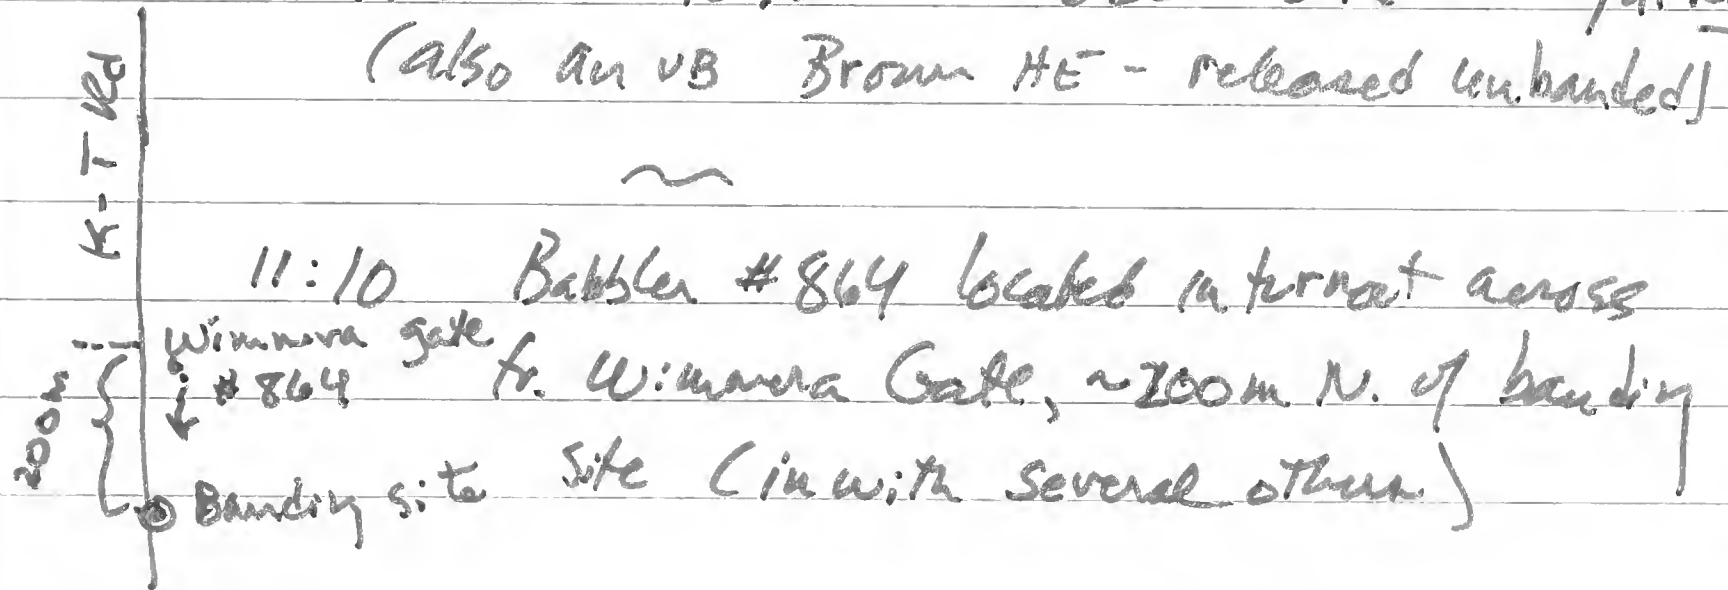 (also an UB Brown HE - released unbanded)
K-T Rd
11:10 Babbler #864 located in turnout across
fr. Wimmera Gate, ~200m N. of banding
site (in with several others)
Wimmera gate
#864
200m
Banding site